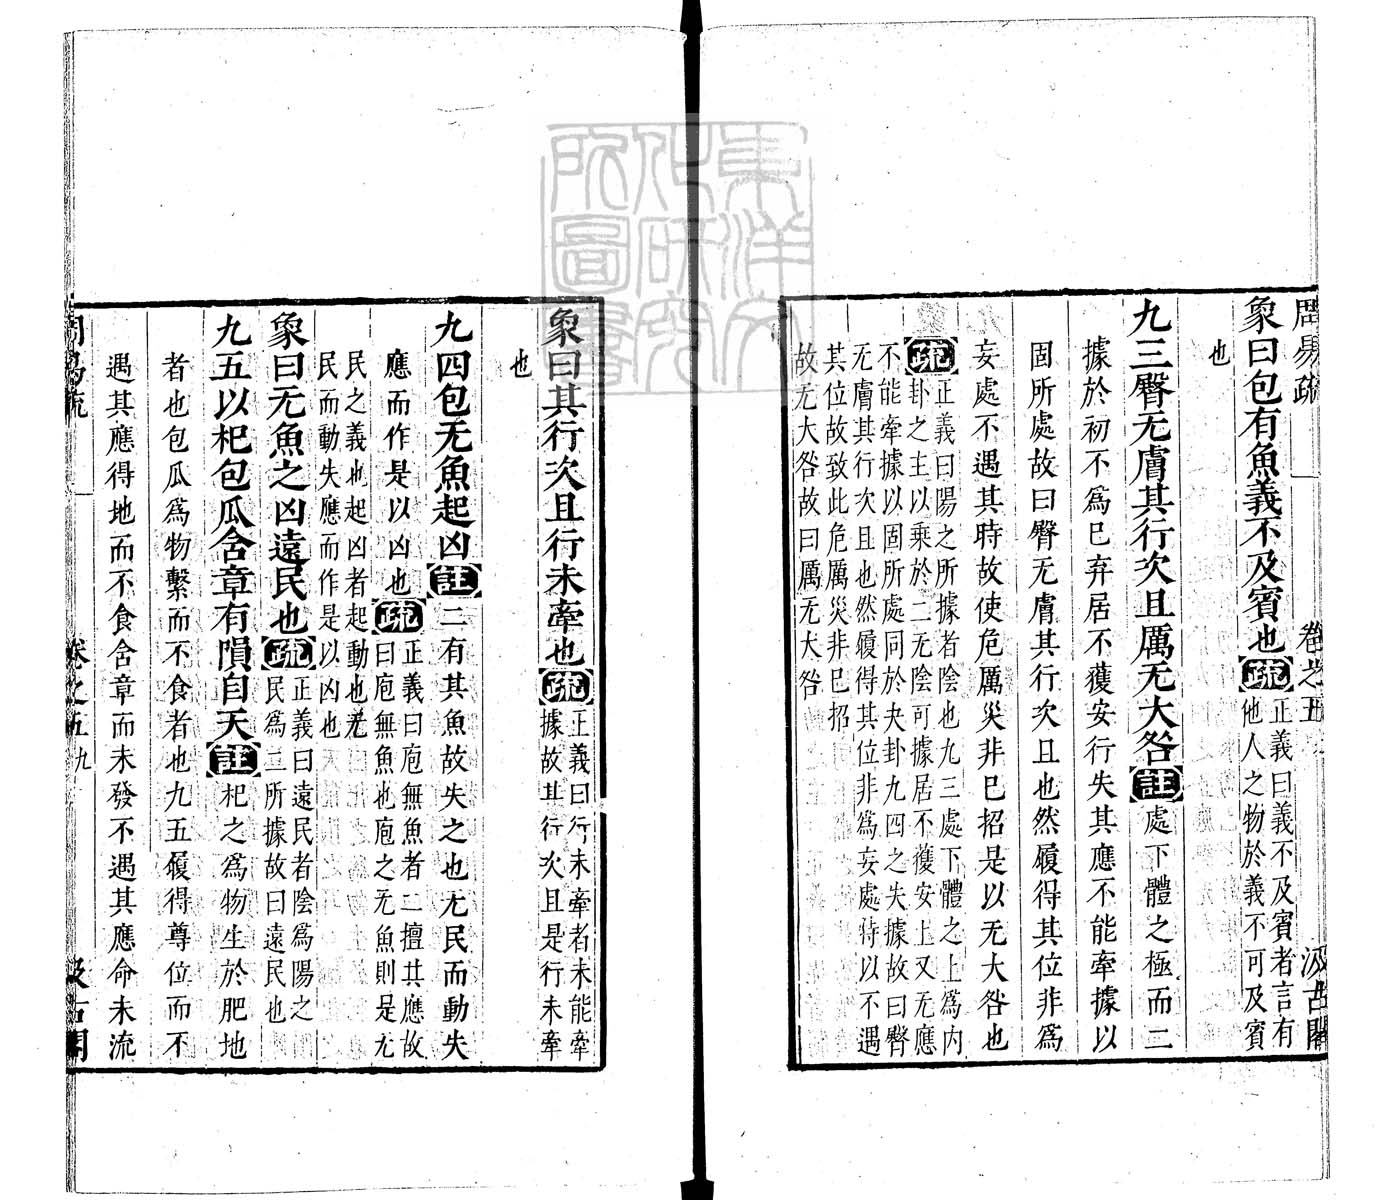 周易疏 卷之五 汲古閣
象曰包有魚義不及賓也疏正義曰義不及賓者言有
他人之物於義不可及賓
也
九三臀无膚其行次且厲无大咎註處下體之極而二
據於初不爲已弃居不獲安行失其應不能牽據以
固所處故曰臀无膚其行次且也然履得其位非爲
妄處不遇其時故使危厲災非已招是以无大咎也
疏正義曰陽之所據者陰也九三處下體之上爲内
卦之主以乘於二无陰可據居不獲安上又无應
不能牽據以固所處同於夬卦九四之失據故曰臀
无膚其行次且也然履得其位非爲妄處特以不遇
其位故致此危厲災非已招
故无大咎故曰厲无大咎
象曰其行次且行未牽也疏正義曰行未牽者未能牽
據故其行次且是行未牽
也
九四包无魚起凶註二有其魚故失之也无民而動失
應而作是以凶也疏正義曰庖無魚者二擅其應故
曰庖無魚也庖之无魚則是无
民之義也起凶者起動也无
民而動失應而作是以凶也
象曰无魚之凶遠民也疏正義曰遠民者陰爲陽之
民爲二所據故曰遠民也
九五以杞包瓜含章有隕自天註杞之爲物生於肥地
者也包瓜爲物繫而不食者也九五履得尊位而不
遇其應得地而不食含章而未發不遇其應命未流
周易疏 卷之五 九 汲古閣
東洋文化研究所圖書